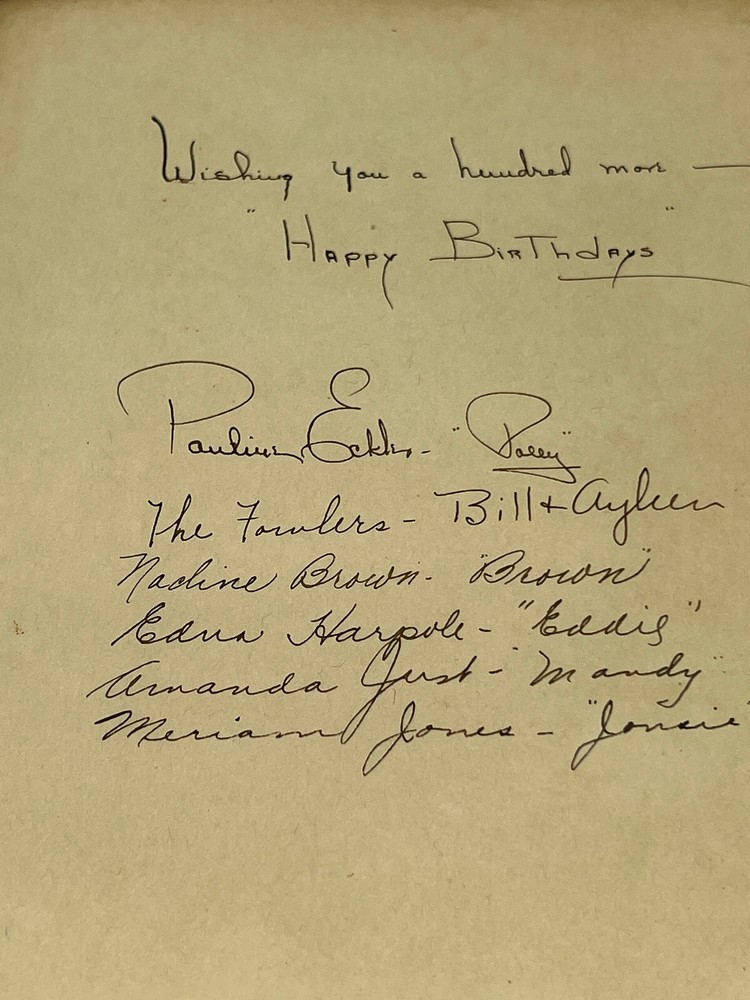 Wishing you a hundred more —
"Happy Birthdays"
Pauline Eckler - "Polly"
The Fowlers - Bill + Ayleen
Nadine Brown - "Brown"
Edna Harpole - "Eddie"
Amanda Just - "Mandy"
Meriam Jones - "Jonsie"